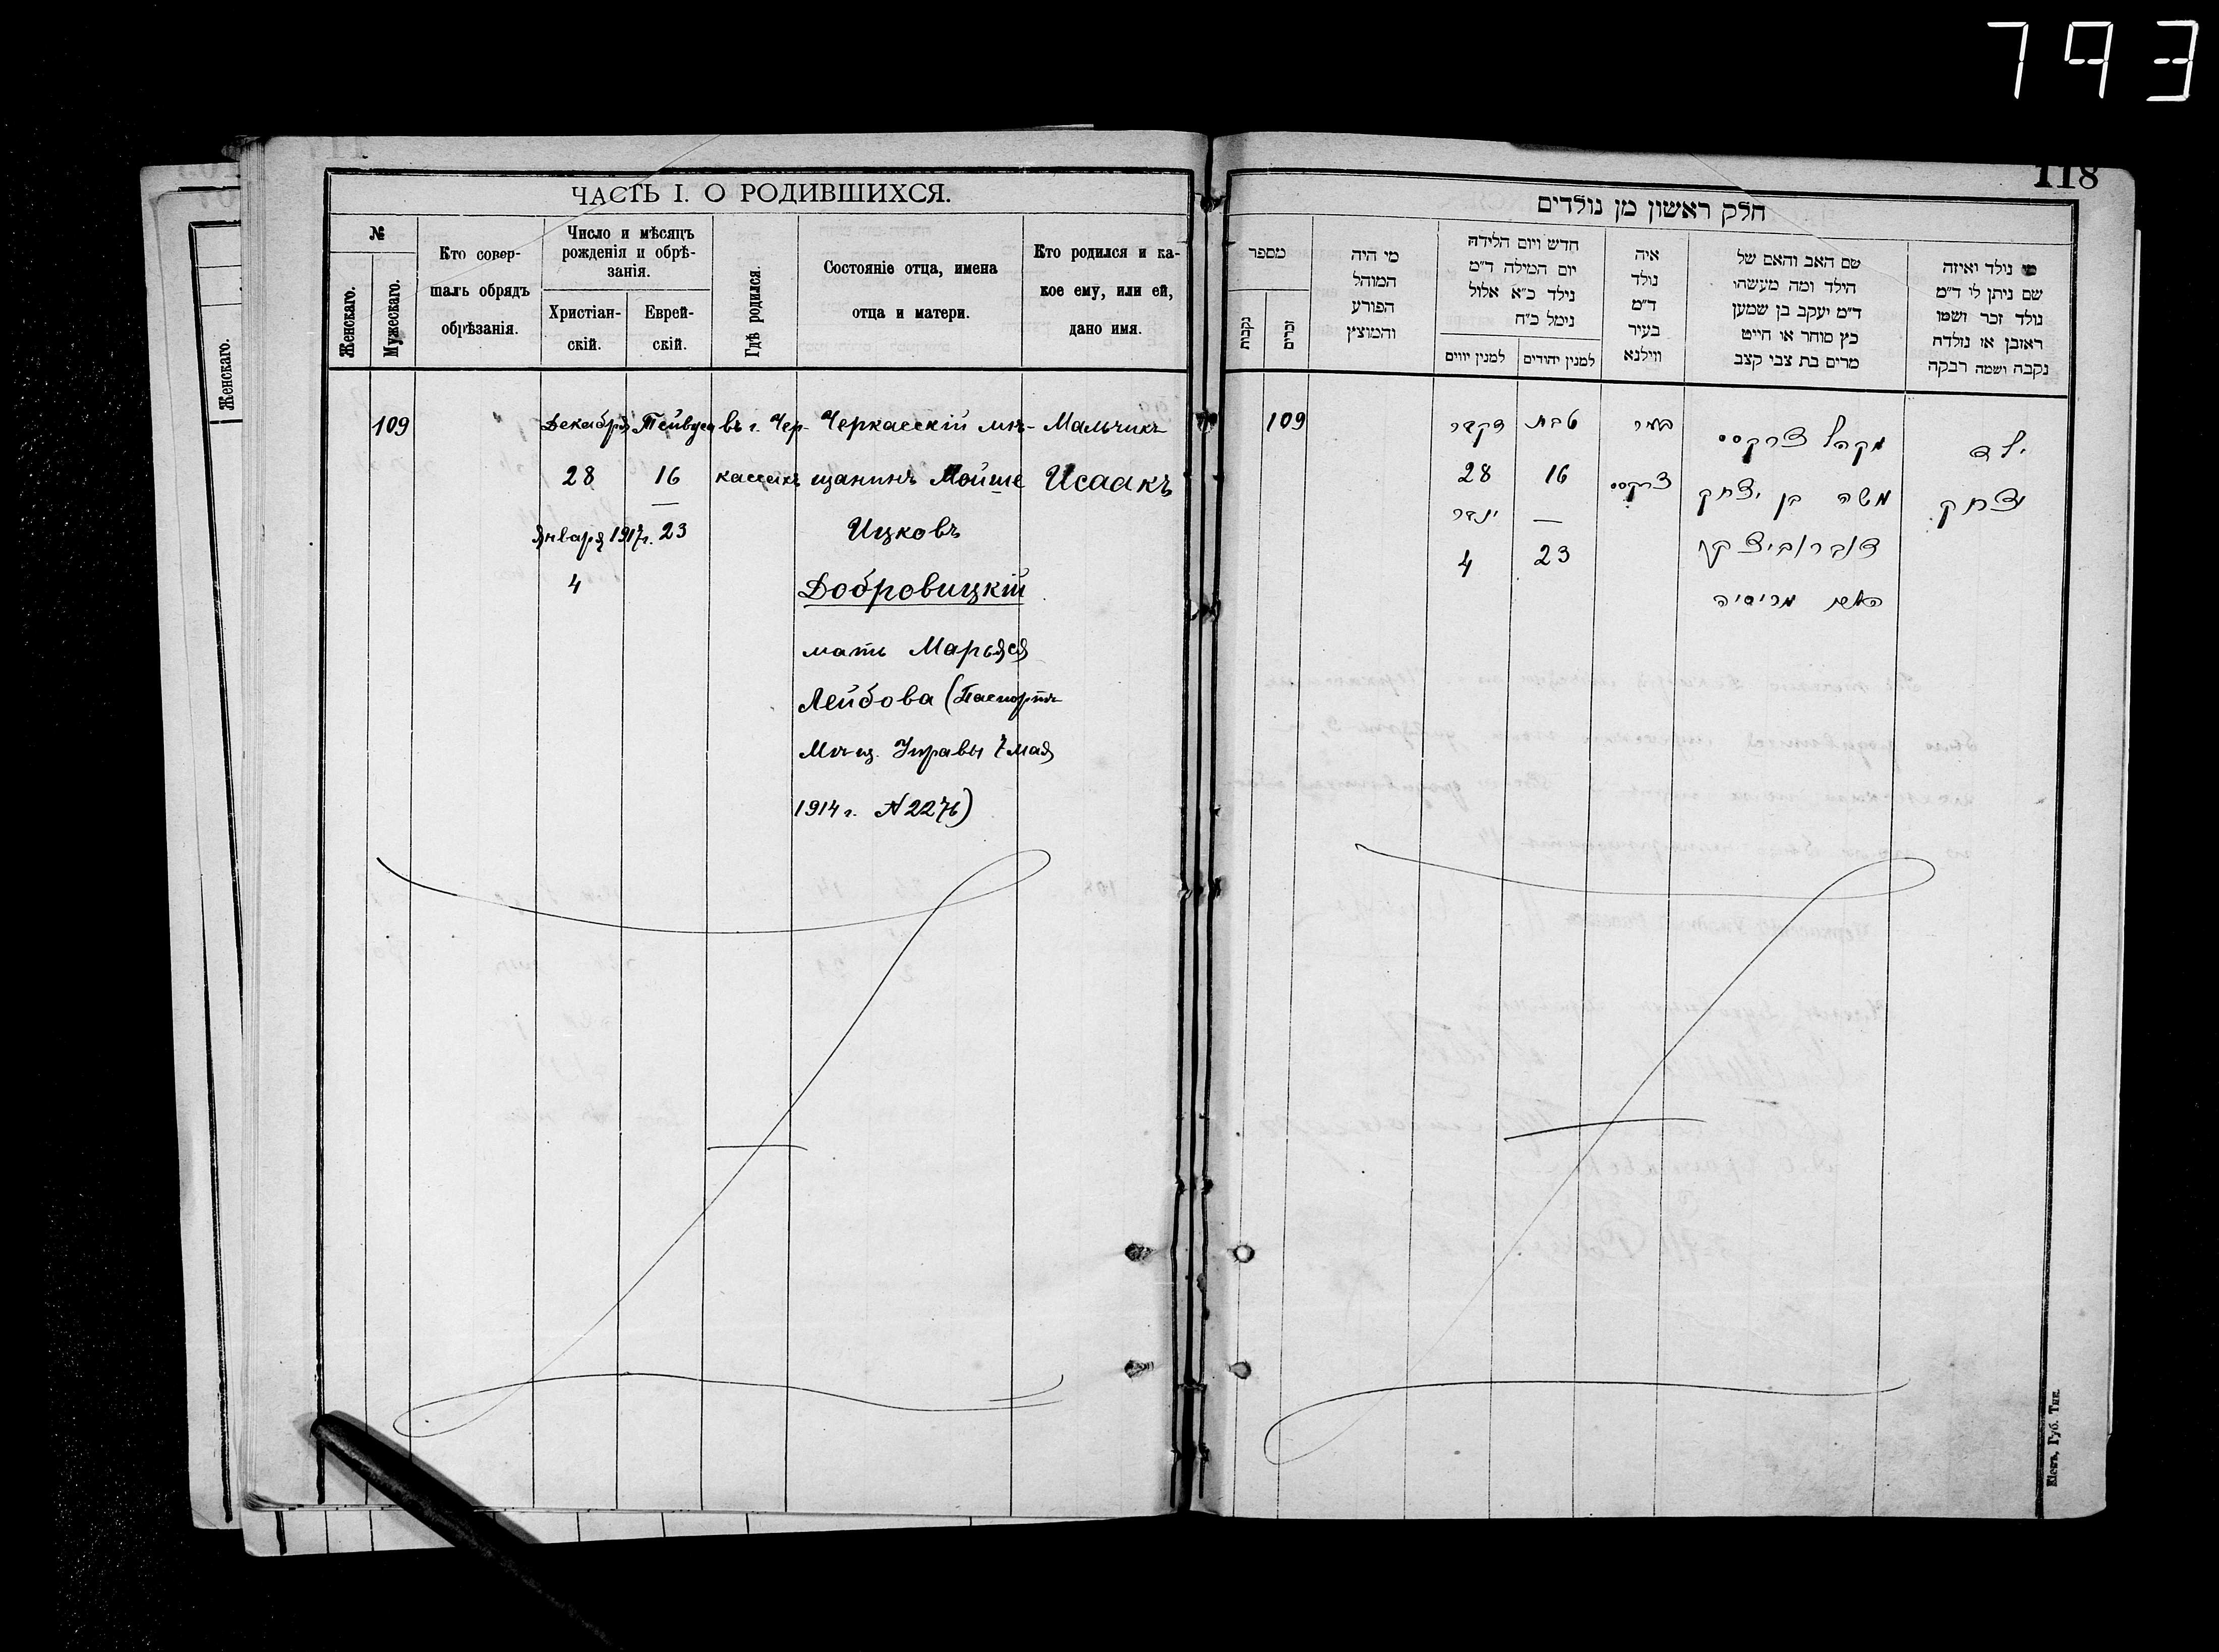 793
118
ЧАСТЬ I. О РОДИВШИХСЯ.
№
Женскаго.
Мужескаго.
Кто совер-
шалъ обрядъ
обрѣзанія.
Число и мѣсяцъ
рожденія и обрѣ-
занія.
Христіан-
скій.
Еврей-
скій.
Гдѣ родился.
Состояніе отца, имена
отца и матери.
Кто родился и ка-
кое ему, или ей,
дано имя.
Женскаго.
109
Декабря
28
Января 1917г.
4
Тейвуса
16
—
23
въ г. Чер-
кассахъ
Черкасскій мѣ-
щанинъ Мойше
Ицковъ
Добровицкій
мать Марьяся
Лейбова (Паспортъ
Мѣщ. Управы 7 мая
1914 г. № 2276)
Мальчикъ
Исаакъ
חלק ראשון מן נולדים
מספר
נקבות
זכרים
מי היה
המוהל
הפורע
והמוצץ
חדש ויום הלידה
יום המילה ד״מ
נילד כ״א אלול
נימל כ״ח
למנין יווים
למנין יהודים
איה
נולד
ד״מ
בעיר
ווילנא
שם האב והאם של
הילד ומה מעשהו
ד״מ יעקב בן שמען
כץ סוחר או חייט
מרים בת צבי קצב
מי נילד ואיזה
שם ניתן לי ד״מ
נולד זכר ושמו
ראובן או נולדה
נקבה ושמה רבקה
109
דקבר
28
ינבר
4
טבת
16
—
23
צרקסס
מקהל צרקסס
משה בן יצחק
דוברוביצקי
האם מריסיה
ילד
יצחק
Кіевъ, Губ. Тип.